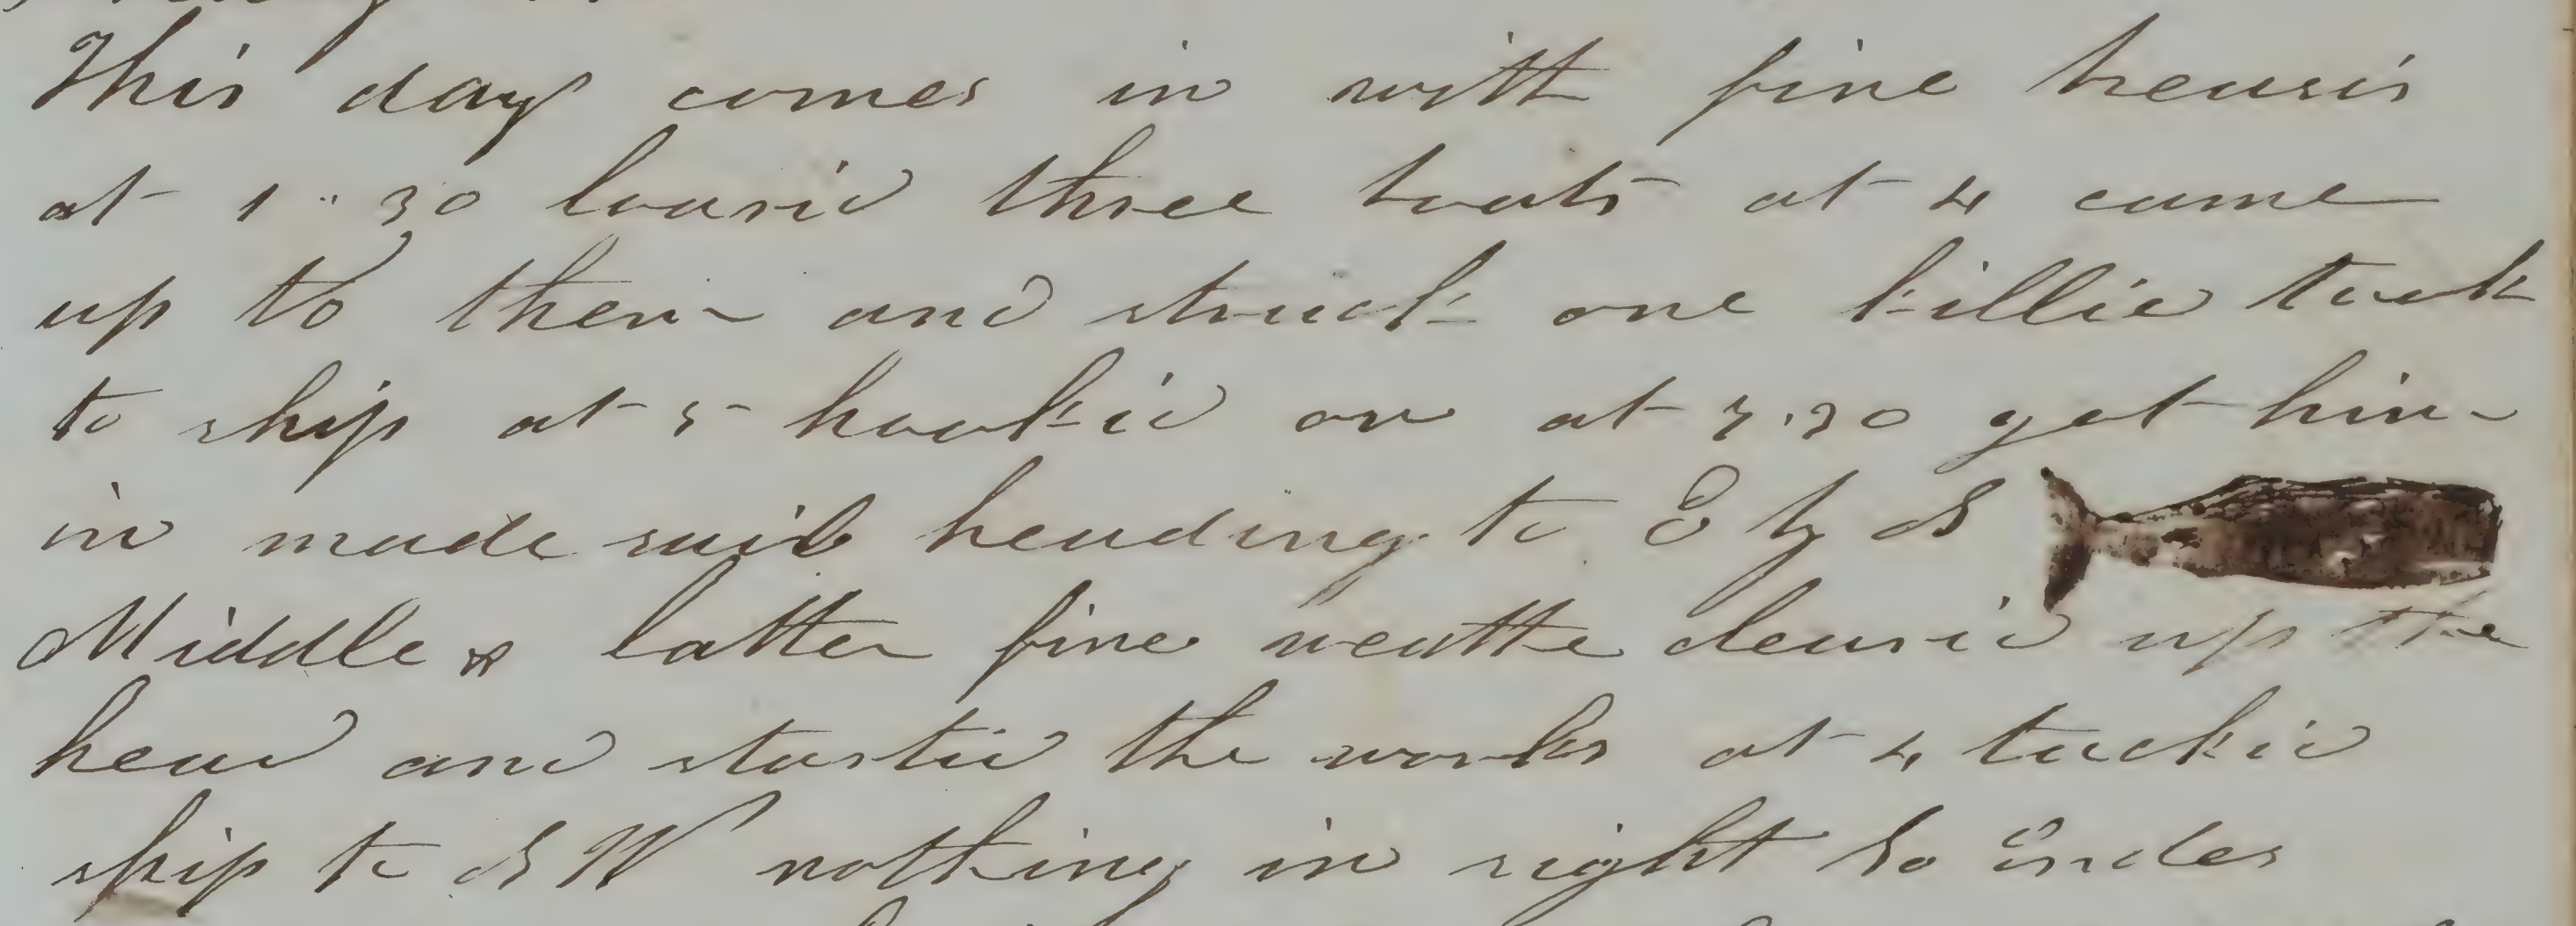 This day comes in with fine breusis
at 1..30 lowrid three boats at 4 came
up to them and struck one killid took
to ship at 5 hookid on at 7.30 got him
in made sail heading to E by S
Middle & latter fine weathe clearid up the
head and startid the works at 4 tackid
ship to SW nothing in sight So Endes